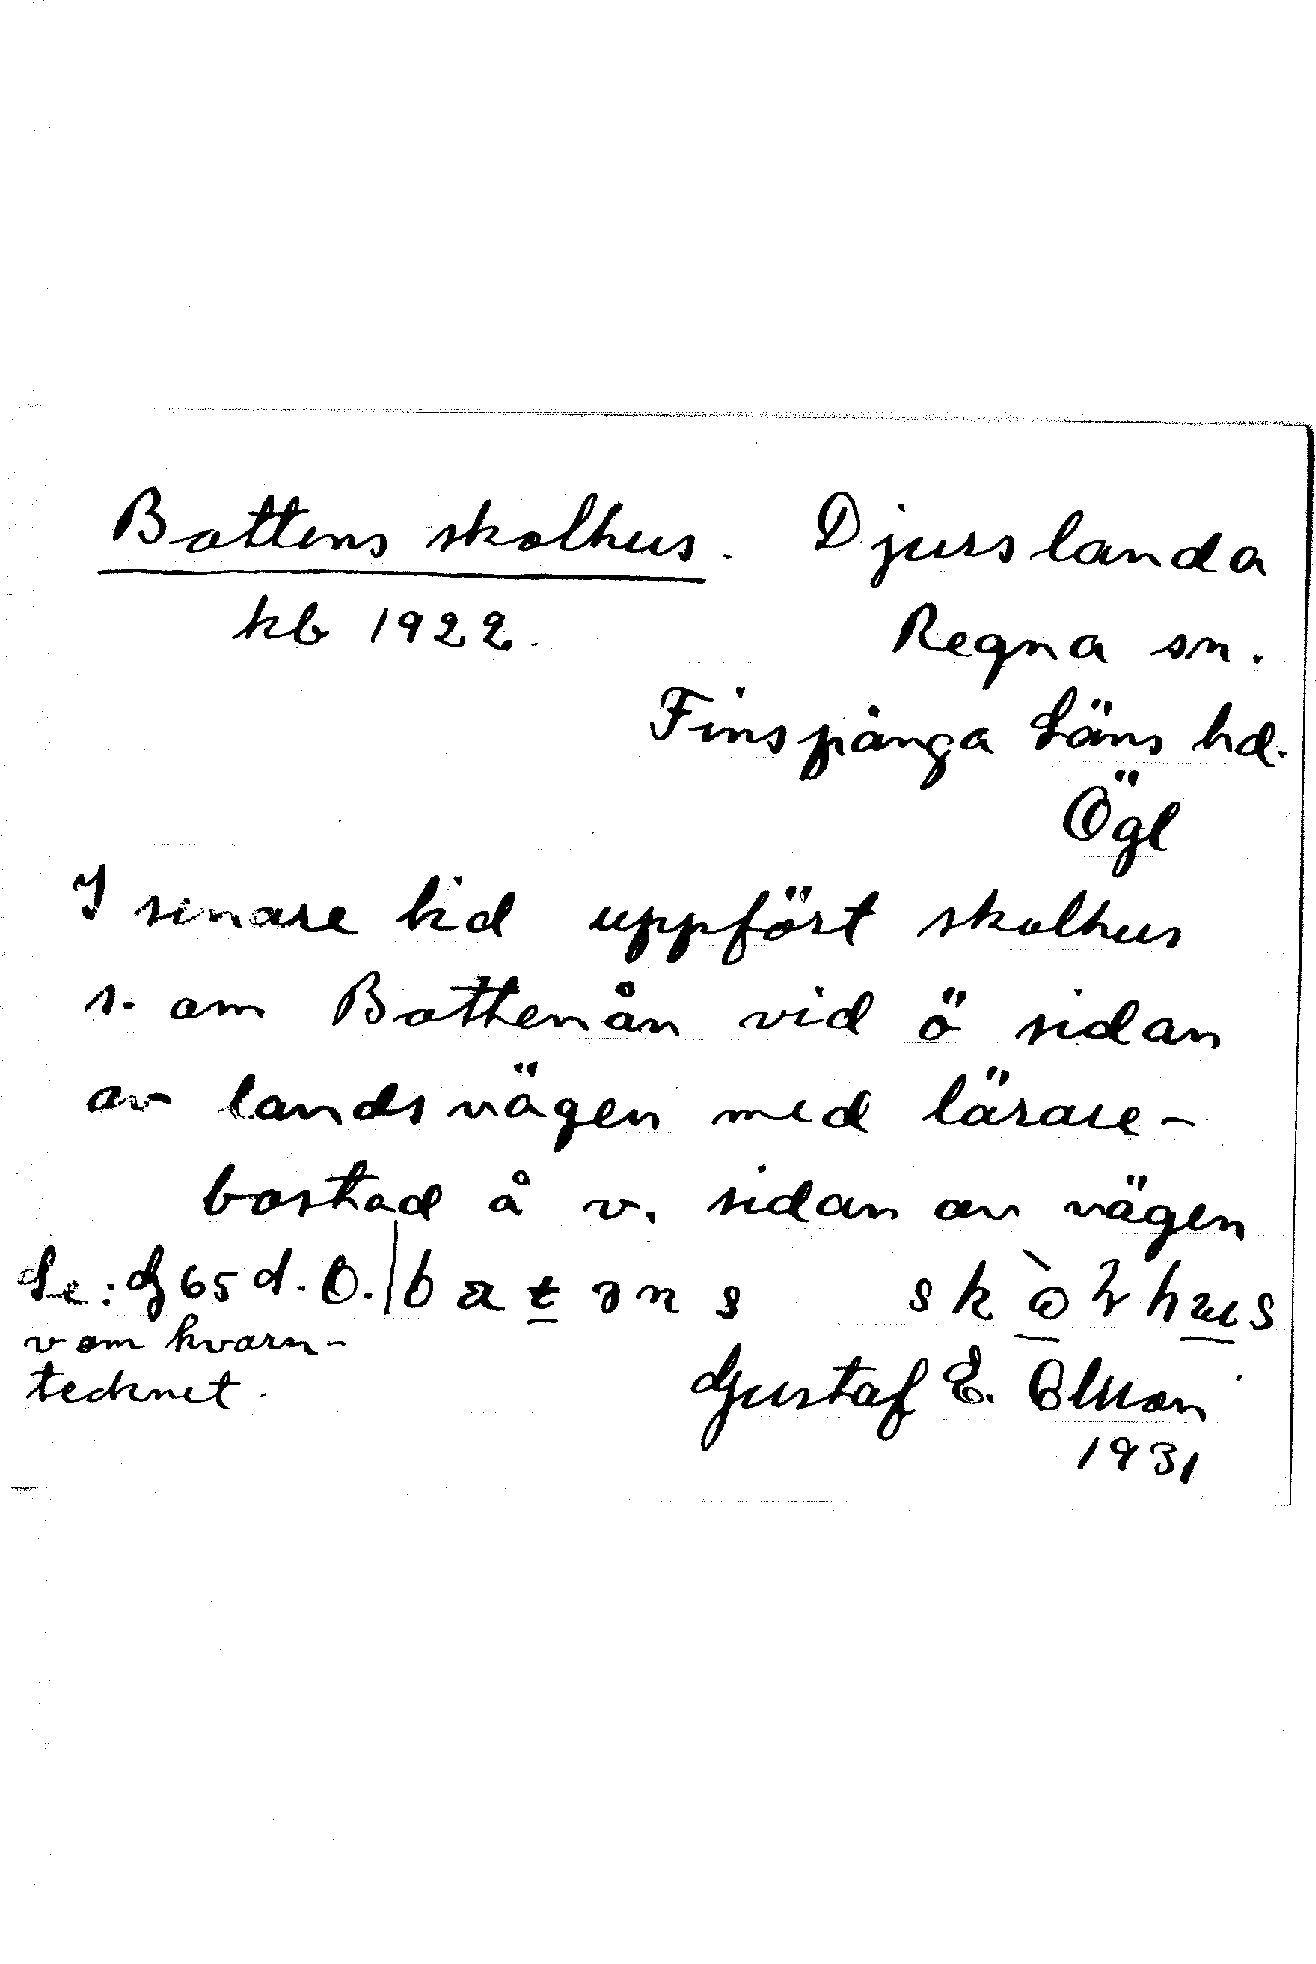 Bottens skolhus. Djurslanda
kb 1922. Regna sn.
Finspånga Läns hd.
Ögl
I senare tid uppfört skolhus
s. om Bottenån vid ö sidan
av landsvägen med lärare-
bostad å v. sidan av vägen
Se: G 65 d. O.
v om kvarn-
tecknet.
Gustaf E.
1931